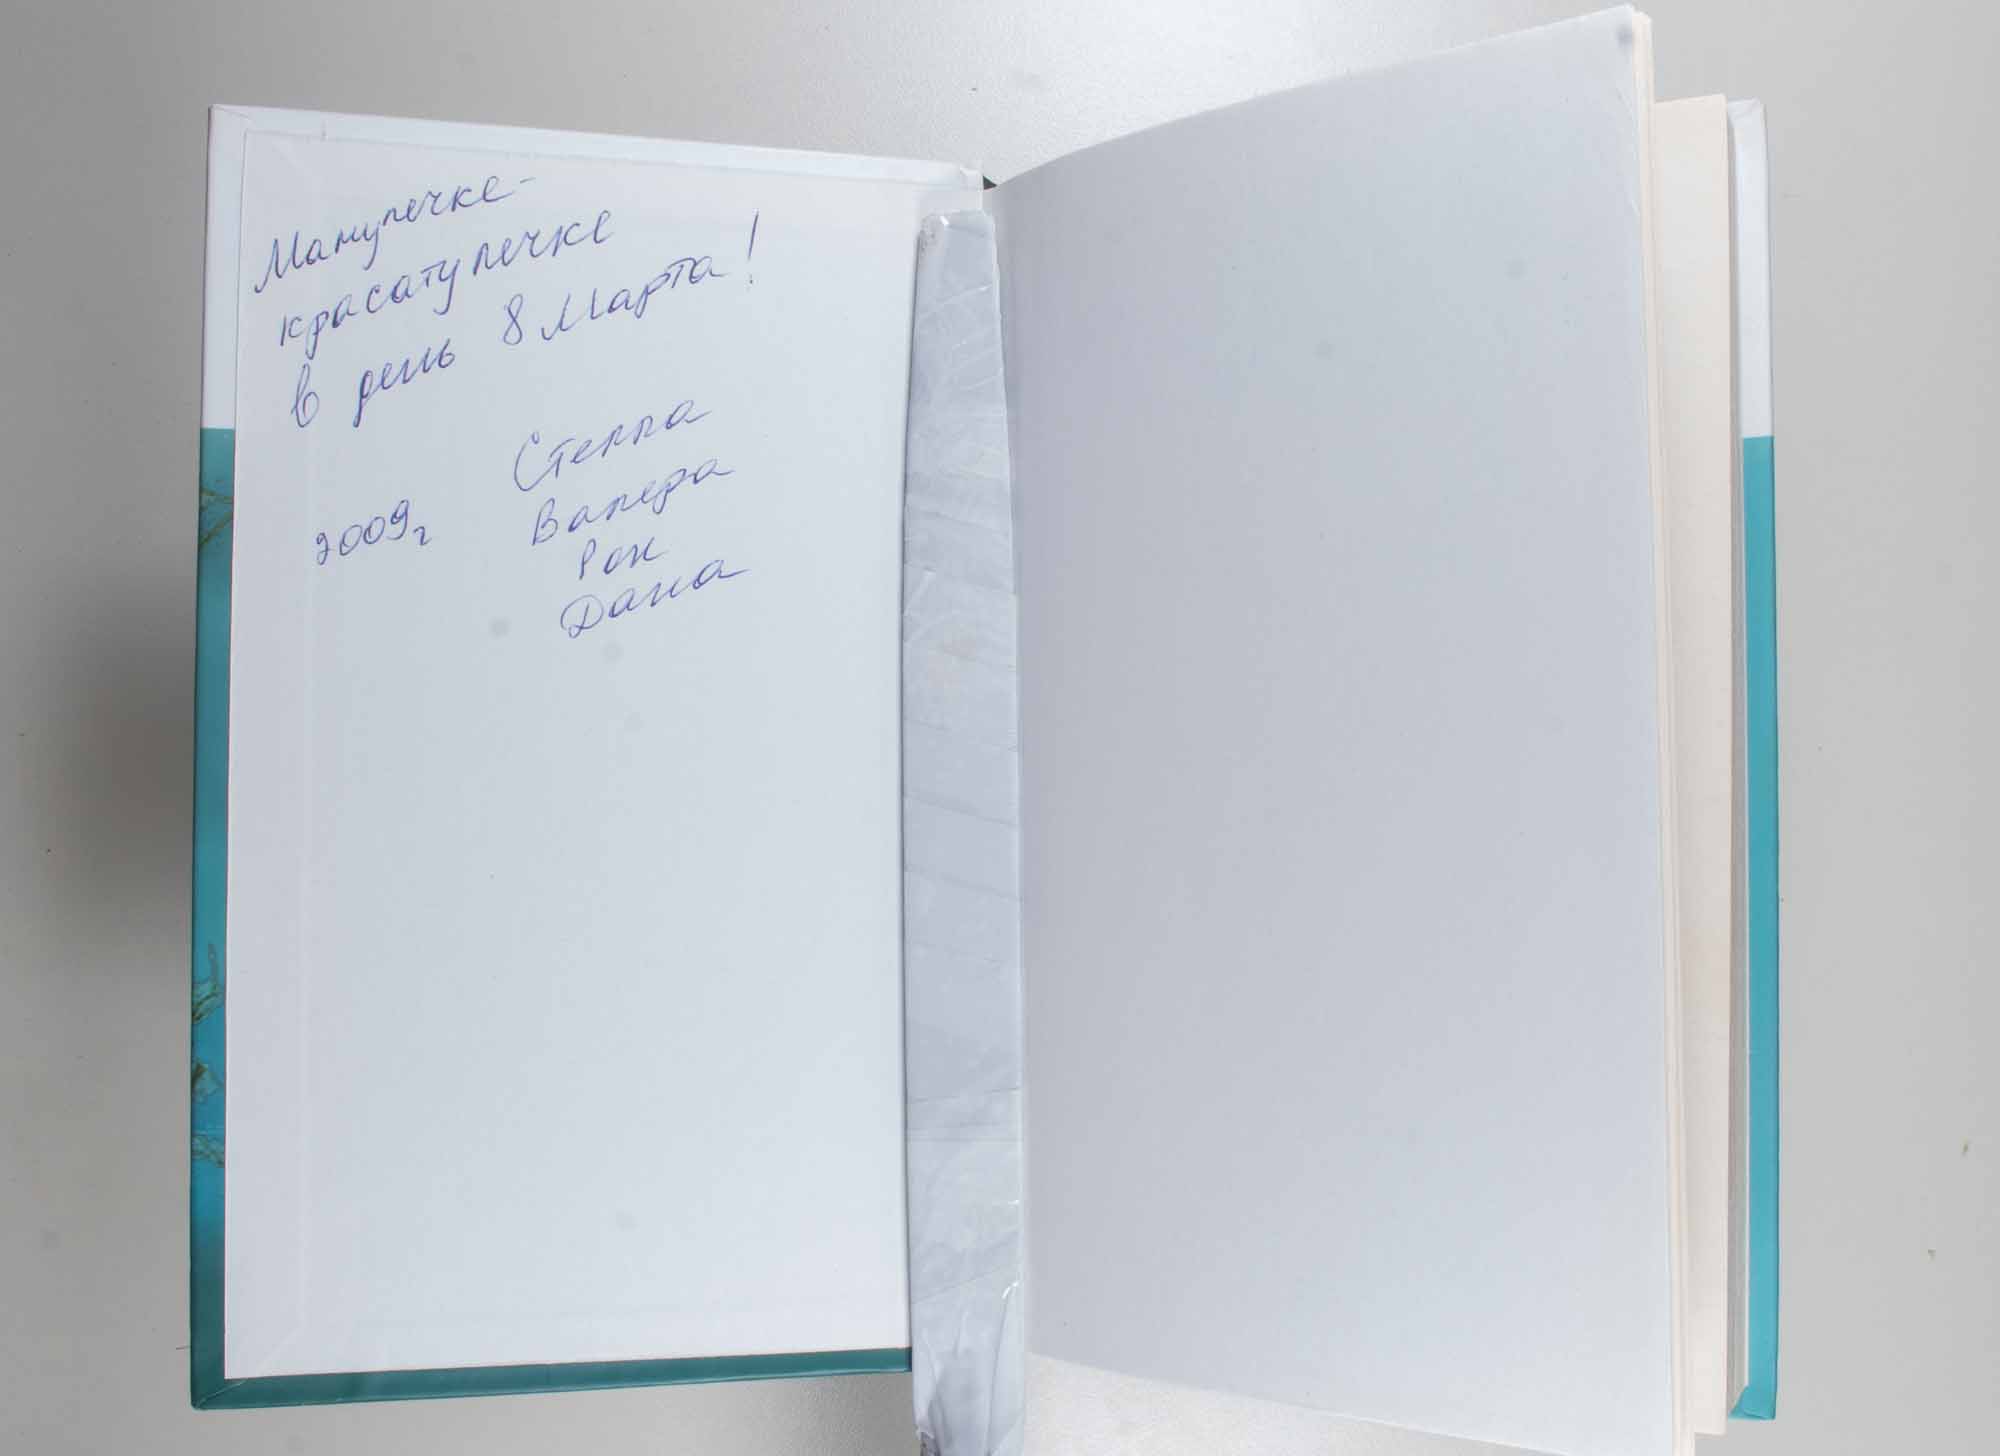 Манулечке-
красатулечке
в день 8 Марта!
Стелла
Валера
2009г
Рон
Дана